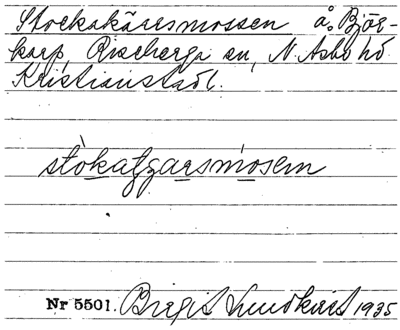 Stockakärrsmossen å. Björ-
karp, Riseberga sn, N. Åsbo hd
Kristianstadl.
Nr 5501. Birgit Lundkvist 1935